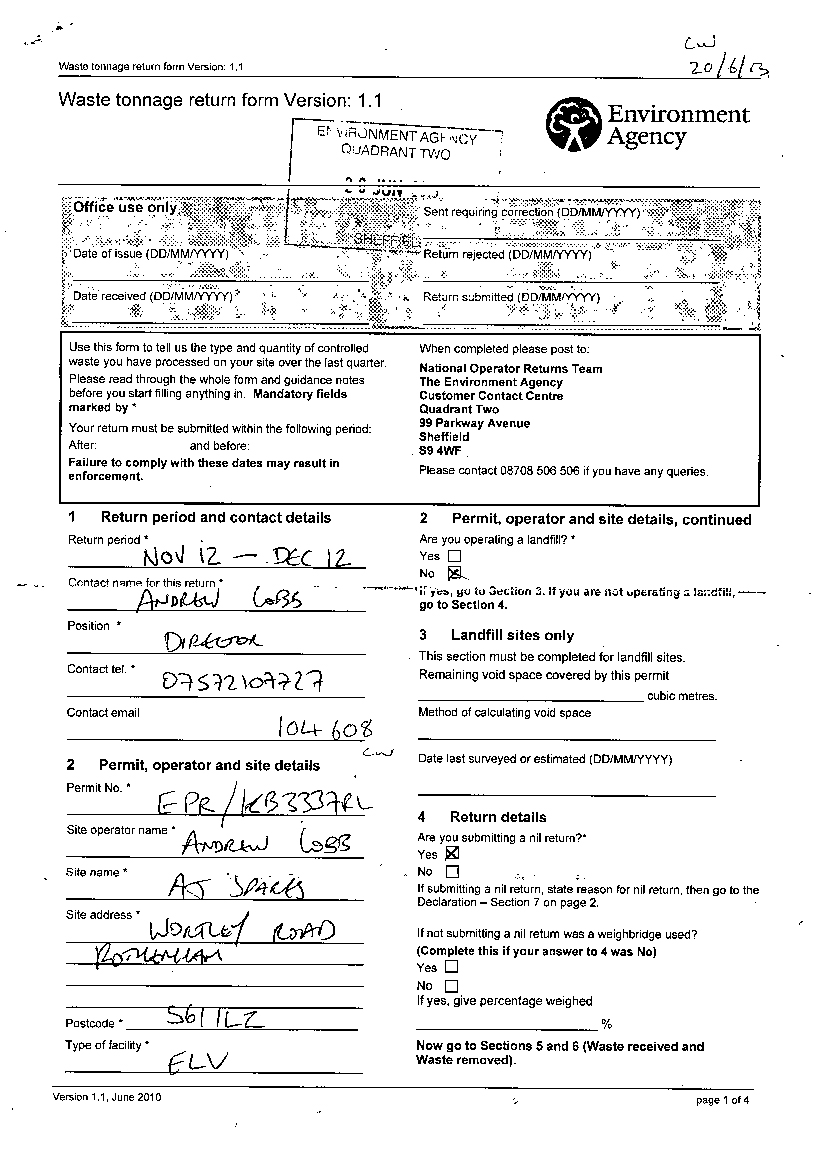 CW
20/6/13
Waste tonnage return form Version: 1.1
Waste tonnage return form Version: 1.1
Environment
Agency
ENVIRONMENT AGENCY
QUADRANT TWO
JUN
SHEFFIELD
Office use only
Sent requiring correction (DD/MM/YYYY)
Date of issue (DD/MM/YYYY)
Return rejected (DD/MM/YYYY)
Date received (DD/MM/YYYY)
Return submitted (DD/MM/YYYY)
Use this form to tell us the type and quantity of controlled
waste you have processed on your site over the last quarter.
Please read through the whole form and guidance notes
before you start filling anything in. Mandatory fields
marked by *
Your return must be submitted within the following period:
After: and before:
Failure to comply with these dates may result in
enforcement.
When completed please post to:
National Operator Returns Team
The Environment Agency
Customer Contact Centre
Quadrant Two
99 Parkway Avenue
Sheffield
S9 4WF
Please contact 08708 506 506 if you have any queries.
1 Return period and contact details
Return period *
NOV 12 — DEC 12
Contact name for this return *
ANDREW
Position *
DIRECTOR
Contact tel. *
07572107727
Contact email
104608
CW
2 Permit, operator and site details
Permit No. *
EPR/KB3337RL
Site operator name *
ANDREW
Site name *
AJ SPARES
Site address *
WORTLEY ROAD
ROTHERHAM
Postcode *
S61 1LZ
Type of facility *
ELV
2 Permit, operator and site details, continued
Are you operating a landfill? *
Yes
No
If yes, go to Section 3. If you are not operating a landfill,
go to Section 4.
3 Landfill sites only
This section must be completed for landfill sites.
Remaining void space covered by this permit
cubic metres.
Method of calculating void space
Date last surveyed or estimated (DD/MM/YYYY)
4 Return details
Are you submitting a nil return?*
Yes
No
If submitting a nil return, state reason for nil return, then go to the
Declaration – Section 7 on page 2.
If not submitting a nil return was a weighbridge used?
(Complete this if your answer to 4 was No)
Yes
No
If yes, give percentage weighed
%
Now go to Sections 5 and 6 (Waste received and
Waste removed).
Version 1.1, June 2010
page 1 of 4